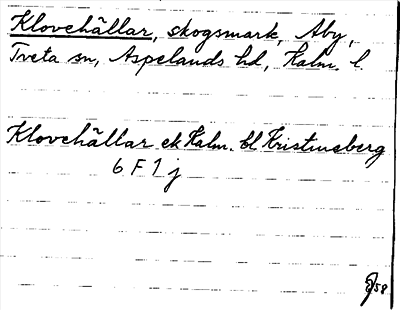 Klovehällar, skogsmark, Åby,
Tveta sn, Aspelands hd, Kalm. l.
Klovehällar ek Kalm. bl Kristineberg
6 F 1 j
58